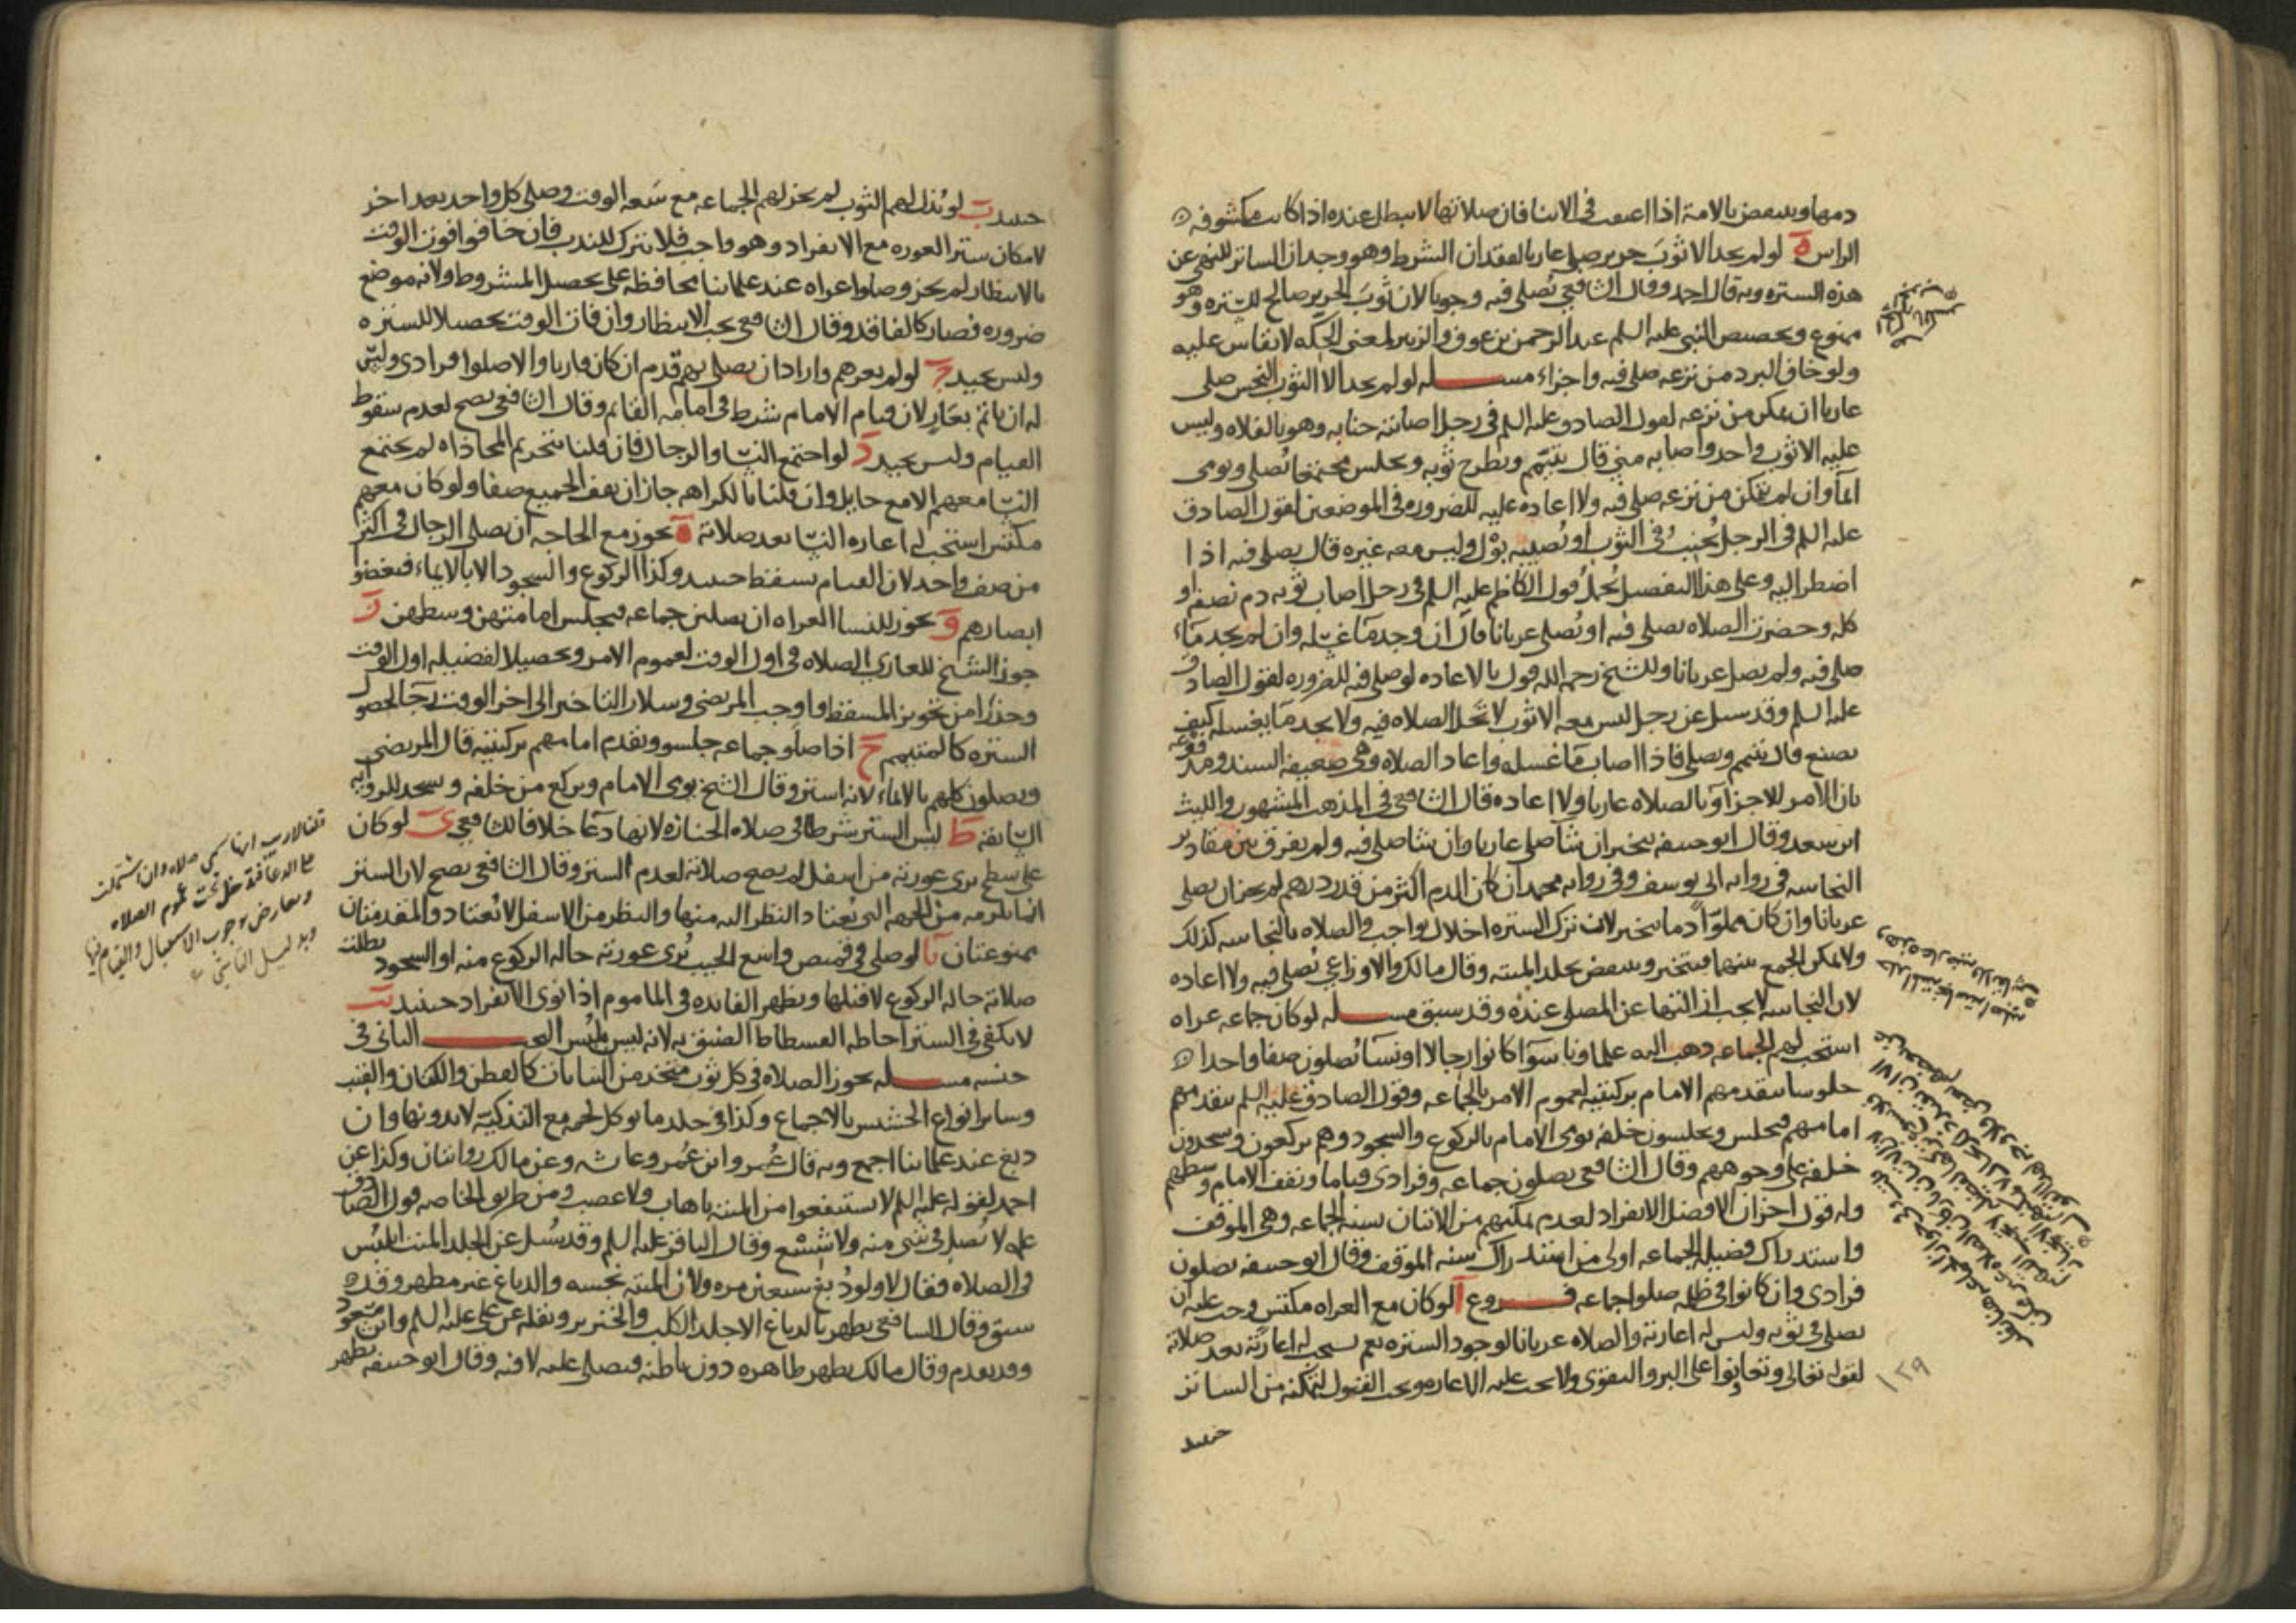 دمها وينتقض بالامة اذا اعتقت فى الاثنا فان صلاتها لا تبطل عنده اذا كانت مكشوفه
الراس ه لو لم يجد الا ثوب حرير صلى عاريا لفقدان الشرط وهو وجدان الساتر للنهى عن
هذه الستره وبه قال احمد وقال الشافعى يصلى فيه وجوبا لان ثوب الحرير صالح للستره وهو
ممنوع وتخصيص النبى عليه السلم عبد الرحمن بن عوف والزبير لمعنى الحكه لا يقاس عليه
ولو خاف البرد من نزعه صلى فيه واجزاه مسله لو لم يجد الا الثوب النجس صلى
عاريا ان تمكن من نزعه لقول الصادق عليه السلم فى رجل اصابته جنابه وهو بالفلاه وليس
عليه الا ثوب واحد واصابه منى قال يتيمم ويطرح ثوبه ويجلس مجتمعا يصلى ويومى
ايماء وان لم يتمكن من نزعه صلى فيه ولا اعاده عليه للضروره فى الموضعين لقول الصادق
عليه السلم فى الرجل يجنب فى الثوب او يصيبه بول وليس معه غيره قال يصلى فيه اذا
اضطر اليه وعلى هذا التفصيل يحمل قول الكاظم عليه السلم فى رجل اصاب ثوبه دم نصفه او
كله وحضرت الصلاه يصلى فيه او يصلى عريانا قال ان وجد ماء غسله وان لم يجد ماء
صلى فيه ولم يصل عريانا وللشيخ رحمه الله قول بالاعاده لو صلى فيه للضروره لقول الصادق
عليه السلم وقد سئل عن رجل ليس معه الا ثوب لا تحل الصلاه فيه ولا يجد ما يغسله كيف
يصنع قال يتيمم ويصلى فاذا اصاب ماء غسله واعاد الصلاه وهى ضعيفه السند ومدفوعه
بان الامر للاجزاء وبالصلاه عاريا ولا اعاده قال الشافعى فى المذهب المشهور والليث
ابن سعد وقال ابو حنيفه يتخير ان شا صلى عاريا وان شا صلى فيه ولم يفرق بين مقادير
النجاسه فى روايه ابى يوسف وفى روايه محمد ان كان الدم اكثر من قدر درهم لم يجز ان يصلى
عريانا وان كان مملوّا دما يتخير لان ترك الستره اخلال بواجب والصلاه بالنجاسه كذلك
ولا يمكن الجمع بينهما فيتخير وينتقض بجلد الميته وقال مالك والاوزاعى يصلى فيه ولا اعاده
لان النجاسه لا يجب ازالتها عن المصلى عنده وقد سبق مسله لو كان جماعه عراه
استحب لهم الجماعه ذهب اليه علماونا سوا كانوا رجالا او نسا يصلون صفا واحدا
جلوسا يتقدمهم الامام بركبتيه لعموم الامر بالجماعه وقول الصادق عليه السلم يتقدمهم
امامهم فيجلس ويجلسون خلفه يومى الامام بالركوع والسجود وهم يركعون ويسجدون
خلفه على وجوههم وقال الشافعى يصلون جماعه وفرادى قياما ويقف الامام وسطهم
وله قول اخر ان الافضل الانفراد لعدم تمكنهم من الاتيان بسنه الجماعه وهى الموقف
واستدراك فضيله الجماعه اولى من استدراك سنه الموقف وقال ابو حنيفه يصلون
فرادى وان كانوا فى ظلمه صلوا جماعه فروع ا لو كان مع العراه مكتس وجب عليه ان
يصلى فى ثوبه وليس له اعارته والصلاه عريانا لوجود الستره نعم يستحب له اعارته بعد صلاته
لقوله تعالى وتعاونوا على البر والتقوى ولا يجب عليه الاعاره ويجب القبول لتمكنه من الساتر
حينئذ
١٢٩
حينئذ ب لو بذل لهم الثوب لم يجز لهم الجماعه مع سعه الوقت وصلى كل واحد بعد اخر
لامكان ستر العوره مع الانفراد وهو واجب فلا يترك للندب فان خافوا فوت الوقت
بالانتظار لم يجز وصلوا عراه عند علمائنا محافظه على تحصيل المشروط ولانه موضع
ضروره فصار كالفاقد وقال الشافعى يجب الانتظار وان فات الوقت تحصيلا للستره
وليس بجيد ج لو لم يعرهم واراد ان يصلى بهم قدم ان كان قاريا والا صلوا فرادى وليس
له ان ياتم بعار لان قيام الامام شرط فى امامه القائم وقال الشافعى يصح لعدم سقوط
القيام وليس بجيد د لو اجتمع النسا والرجال فان قلنا بتحريم المحاذاه لم يجتمع
النسا معهم الا مع حايل وان قلنا بالكراهه جاز ان يقف الجميع صفا ولو كان معهم
مكتس استحب له اعاره النسا بعد صلاته ه يجوز مع الحاجه ان يصلى الرجال فى اكثر
من صف واحد لان القيام يسقط حينئذ وكذا الركوع والسجود الا بالايماء فيغضوا
ابصارهم و يجوز للنسا العراه ان يصلين جماعه فيجلس امامتهن وسطهن ز
جوز الشيخ للعارى الصلاه فى اول الوقت لعموم الامر وتحصيلا لفضيله اول الوقت
وحذرا من تجويز المسقط واوجب المرتضى وسلار التاخير الى اخر الوقت رجا لحصول
الستره كالمتيمم ح اذا صلوا جماعه جلسوا ويقدم امامهم بركبتيه قال المرتضى
ويصلون كلهم بالايماء لانه استر وقال الشيخ يومى الامام ويركع من خلفه ويسجد للروايه
السابقه ط ليس الستر شرطا فى صلاه الجنازه لانها دعا خلافا للشافعى ى لو كان
على سطح يرى عورته من اسفل لم يصح صلاته لعدم الستر وقال الشافعى يصح لان الستر
انما يلزمه من الجهه التى يعتاد النظر اليه منها والنظر من الاسفل لا يعتاد والمقدمتان
ممنوعتان يا لو صلى فى قميص واسع الجيب يرى عورته حاله الركوع منه او السجود بطلت
صلاته حاله الركوع لا قبلها ويظهر الفائده فى الماموم اذا نوى الانفراد حينئذ يب
لا يكفى فى الستر احاطه الفسطاط الضيق به لانه ليس بلبس البحث الثانى فى
جنسه مسله يجوز الصلاه فى كل ثوب متخذ من النباتات كالقطن والكتان والقنب
وساير انواع الحشيش بالاجماع وكذا فى جلد ما يوكل لحمه مع التذكيه لا بدونها وان
دبغ عند علمائنا اجمع وبه قال عمر وابن عمر وعايشه وعن مالك روايتان وكذا عن
احمد لقوله عليه السلم لا تنتفعوا من الميته باهاب ولا عصب ومن طريق الخاصه قول الصادق
عليه لا تصل فى شى منه ولا شسع وقال الباقر عليه السلم وقد سئل عن الجلد الميت ايلبس
فى الصلاه فقال لا ولو دبغ سبعين مره ولان الميته نجسه والدباغ غير مطهر وقد
سبق وقال الشافعى يطهر بالدباغ الا جلد الكلب والخنزير ونقله عن على عليه السلم وابن مسعود
وقد تقدم وقال مالك يطهر ظاهره دون باطنه فيصلى عليه لا فيه وقال ابو حنيفه يطهر
قلنا لا ريب انها تسمى صلاه وان اشتملت
على الدعا فتدخل تحت عموم الصلاه
ويعارض بوجوب الاستقبال والقيام فيها
وبدليل التاسى